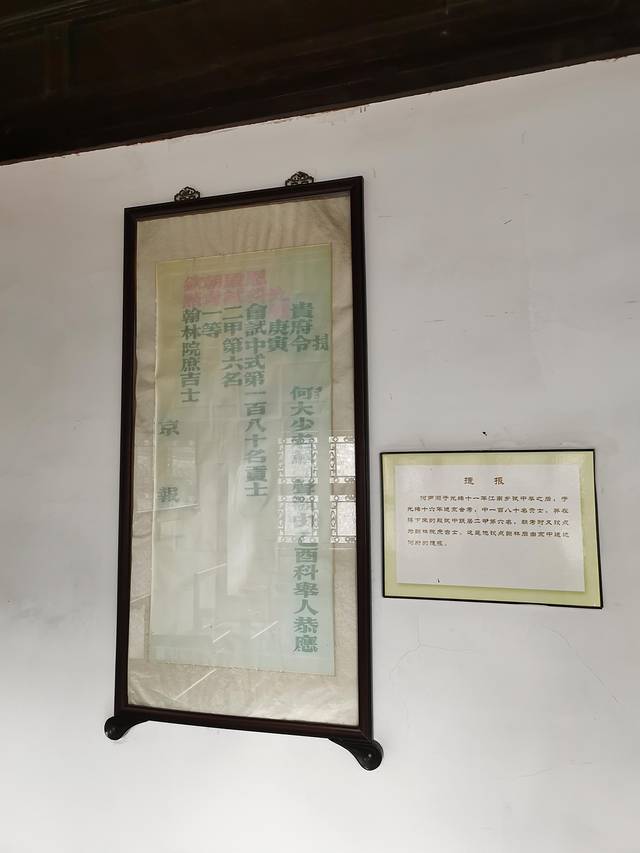 捷
貴府令 何大少 乙酉科舉人恭應
庚寅
會試中式第一百八十名貢士
二甲第六名
一等
翰林院庶吉士
京 報
捷 报
何声灏于光绪十一年江南乡试中举之后，于
光绪十六年进京会考，中一百八十名贡士，并在
接下来的殿试中获居二甲第六名，朝考时又钦点
为翰林院庶吉士。这是他钦点翰林后由京中送达
何府的捷报。